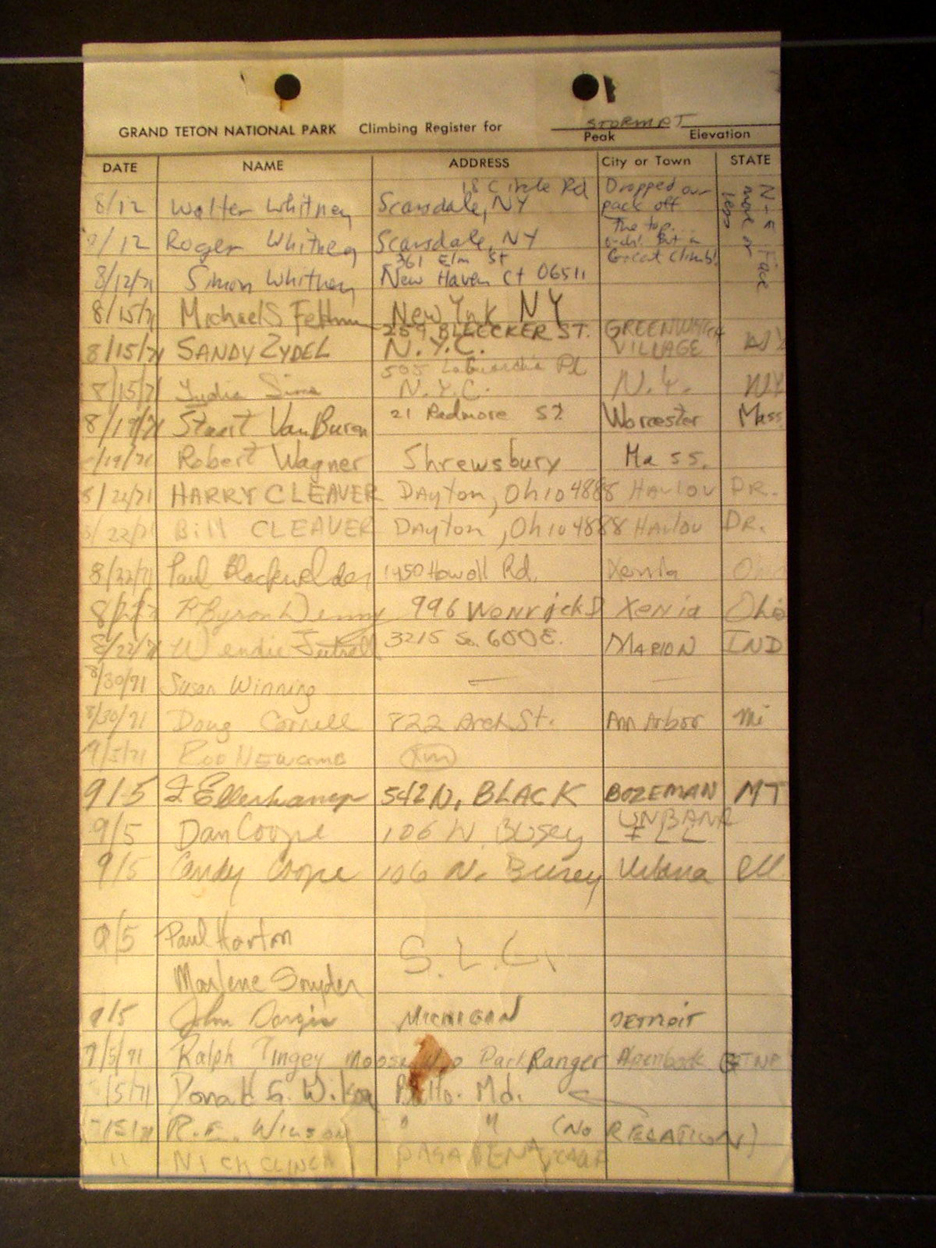 STORM PT
GRAND TETON NATIONAL PARK Climbing Register for
Peak Elevation
DATE NAME ADDRESS City or Town STATE
18 Circle Rd Dropped our
8/12 Walter Whitney Scarsdale, NY pack off
The top...
8/12 Roger Whitney Scarsdale, NY
361 Elm St Great climb!
8/12/71 Simon Whitney New Haven Ct 06511
N-E Face
more or
less
8/15/71 Michael S New York NY
259 BLEECKER ST. GREENWICH
8/15/71 SANDY ZYDEL N.Y.C. VILLAGE NY
505 LaGuardia Pl
8/15/71 Lydia N.Y.C. N.Y. NY
8/19/71 Stuart Van Buren 21 Radmore St Worcester Mass
8/19/71 Robert Wagner Shrewsbury Mass.
8/22/71 HARRY CLEAVER Dayton, Ohio 4888 Havlov DR.
8/22/71 Bill CLEAVER Dayton, Ohio 4888 Havlov DR.
8/22/71 Paul Blackwelder 1450 Howell Rd. Xenia Ohio
8/22/71 Byron Denny 996 Xenia Ohio
8/22/71 Wendie 3215 So. 600 E. MARION IND
8/30/71 Susan Winning — —
8/30/71 Doug Cornell 822 Arch St. Ann Arbor Mi
9/5/71 Rod Newcomb
9/5 542 N. BLACK BOZEMAN MT
URBANA
9/5 Dan Coope 106 W. Busey ILL
9/5 Candy Coope 106 N. Busey Urbana Ill
9/5 Paul Horton
S.L.C.
Marlene Snyder
9/5 John MICHIGAN DETROIT
9/5/71 Ralph Tingey Moose Wyo Park Ranger GTNP
9/5/71 Donald G. Wilson Balto. Md.
9/5/71 R.E. Wilson " " (NO RELATION)
" NICK CLINCH PASADENA, CALIF